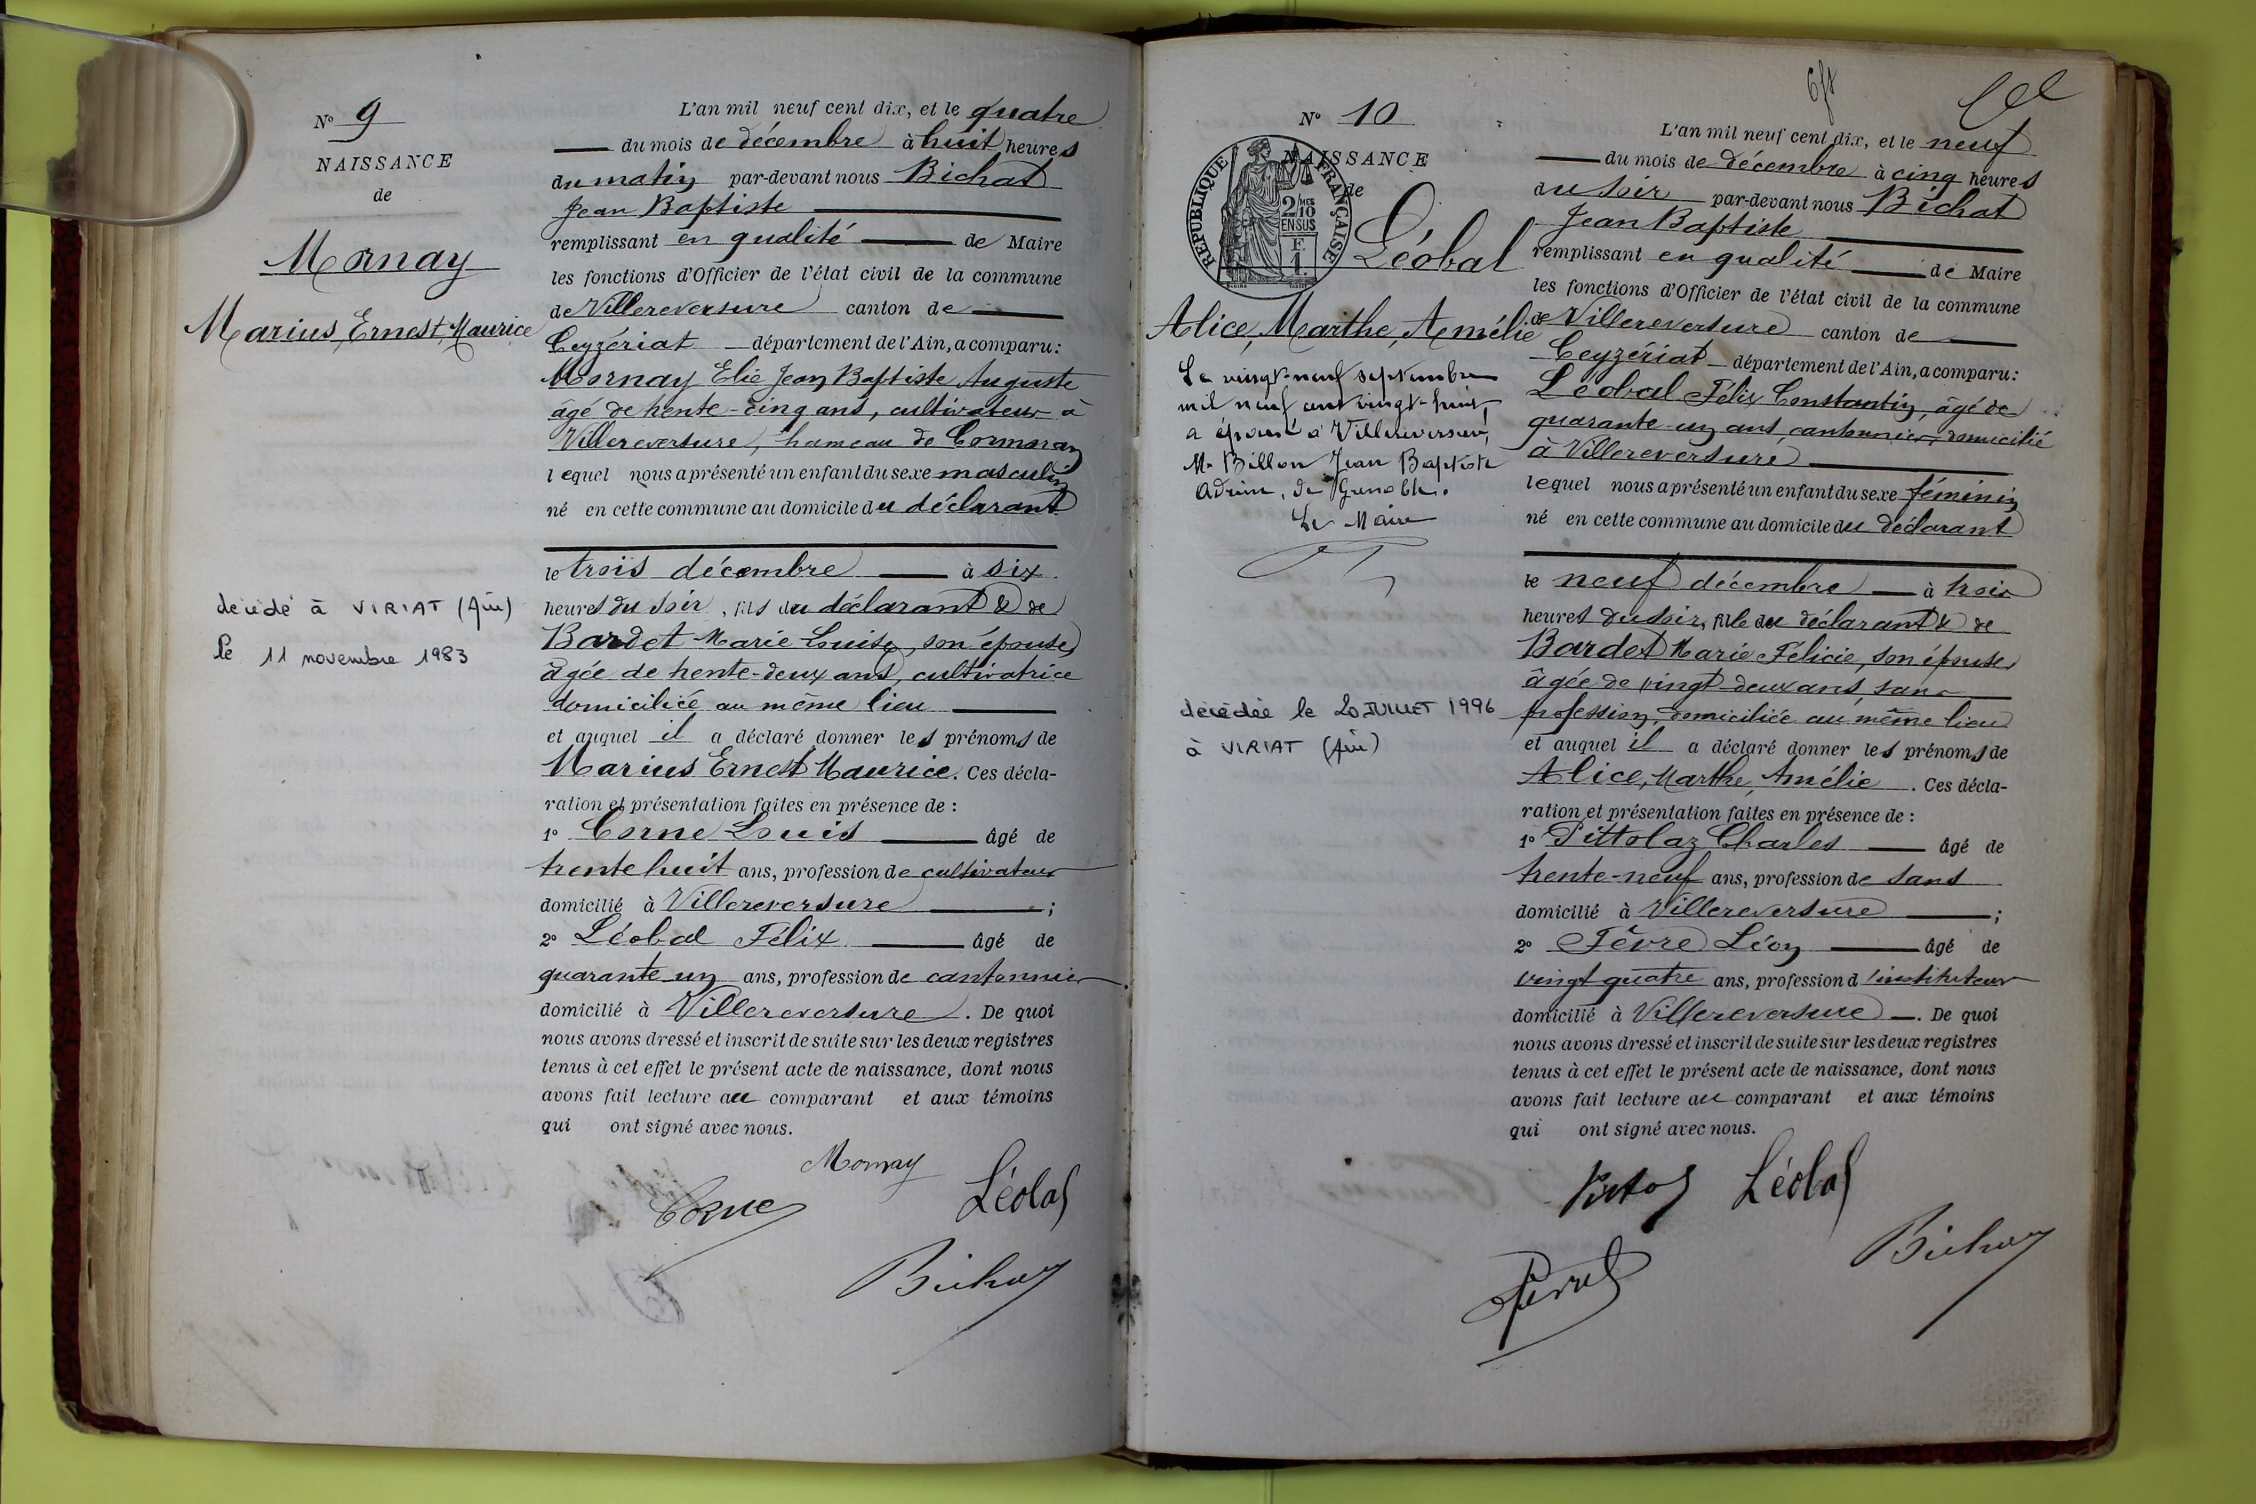 N° 9
NAISSANCE
de
Mornay
Marius, Ernest, Maurice
décédé à VIRIAT (Ain)
le 11 novembre 1983
L'an mil neuf cent dix, et le quatre
du mois de décembre à huit heures
du matin par-devant nous Bichat
Jean Baptiste
remplissant en qualité de Maire
les fonctions d'Officier de l'état civil de la commune
de Villereversure canton de
Ceyzériat département de l'Ain, a comparu:
Mornay Elie Jean Baptiste Auguste
âgé de trente-cinq ans, cultivateur à
Villereversure, hameau de Cormoran
lequel nous a présenté un enfant du sexe masculin
né en cette commune au domicile du déclarant
le trois décembre à six
heures du soir, fils du déclarant & de
Bardet Marie Louise, son épouse
âgée de trente-deux ans, cultivatrice
domiciliée au même lieu
et auquel il a déclaré donner les prénoms de
Marius Ernest Maurice. Ces décla-
ration et présentation faites en présence de :
1° Corne Louis âgé de
trente huit ans, profession de cultivateur
domicilié à Villereversure ;
2° Léobal Félix âgé de
quarante un ans, profession de cantonnier
domicilié à Villereversure. De quoi
nous avons dressé et inscrit de suite sur les deux registres
tenus à cet effet le présent acte de naissance, dont nous
avons fait lecture au comparant et aux témoins
qui ont signé avec nous.
Mornay
Corne Léobal
Bichat
N° 10
NAISSANCE
de
REPUBLIQUE FRANÇAISE
2 MES
10
EN SUS
F.
1.
Léobal
Alice, Marthe, Amélie
Le vingt-neuf septembre
mil neuf cent vingt-huit,
a épousé à Villereversure,
Mr Billon Jean Baptiste
Adrien, de Grenoble.
Le Maire
décédée le 20 JUILLET 1996
à VIRIAT (Ain)
L'an mil neuf cent dix, et le neuf
du mois de décembre à cinq heures
du soir par-devant nous Bichat
Jean Baptiste
remplissant en qualité de Maire
les fonctions d'Officier de l'état civil de la commune
de Villereversure canton de
Ceyzériat département de l'Ain, a comparu:
Léobal Félix Constantin, âgé de
quarante-un ans, cantonnier, domicilié
à Villereversure
lequel nous a présenté un enfant du sexe féminin
né en cette commune au domicile du déclarant
le neuf décembre à trois
heures du soir, fille du déclarant & de
Bardet Marie Félicie, son épouse
âgée de vingt-deux ans, sans
profession, domiciliée au même lieu
et auquel il a déclaré donner les prénoms de
Alice, Marthe, Amélie. Ces décla-
ration et présentation faites en présence de :
1° Pittolaz Charles âgé de
trente-neuf ans, profession de sans
domicilié à Villereversure ;
2° Fèvre Léon âgé de
vingt quatre ans, profession d'instituteur
domicilié à Villereversure. De quoi
nous avons dressé et inscrit de suite sur les deux registres
tenus à cet effet le présent acte de naissance, dont nous
avons fait lecture au comparant et aux témoins
qui ont signé avec nous.
Léobal
Bichat